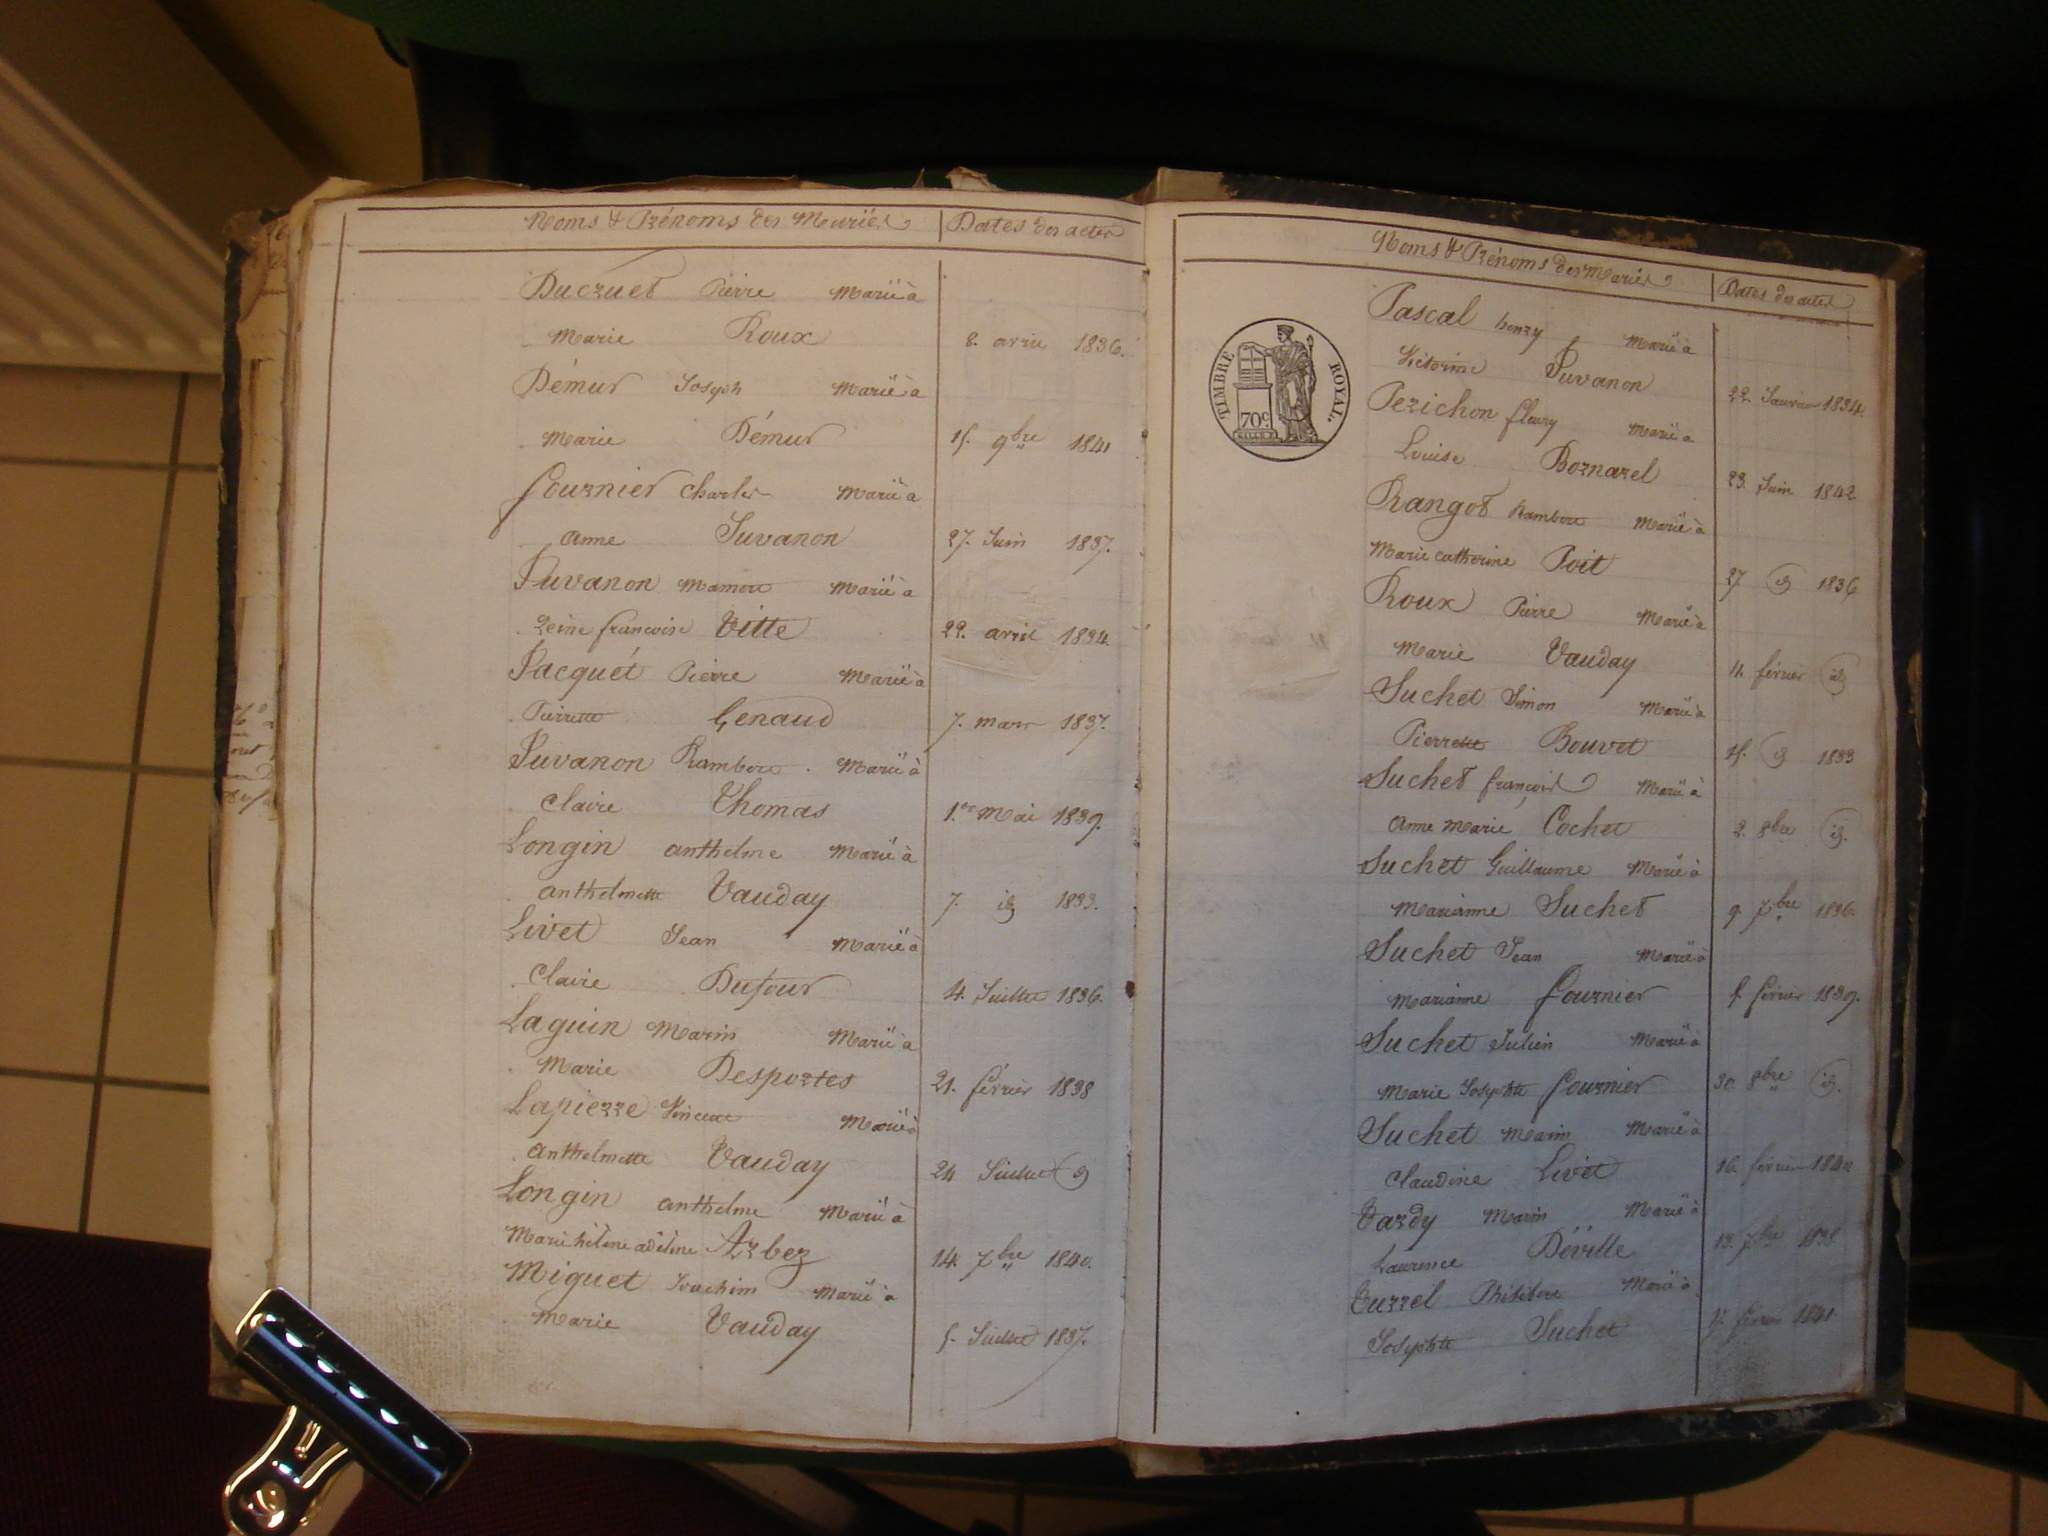 Noms & Prénoms des Mariés Dates des actes
Ducruet Pierre Marié à
Marie Roux 8. avril 1836.
Démur Joseph Marié à
Marie Démur 15. 9bre 1841
fournier Charles Marié à
anne Juvanon 27. Juin 1837.
Juvanon Mamert Marié à
Reine françoise Vitte 22. avril 1834.
Jacquet Pierre Marié à
Pierrette Genaud 7. mars 1837.
Juvanon Rambert Marié à
Claire Thomas 1.er Mai 1839.
Longin anthelme Marié à
anthelmette Vauday 7. id 1833.
Livet Jean Marié à
Claire Dufour 4. Juillet 1836.
Laguin Marin Marié à
Marie Desportes 21. février 1838
Lapierre Vincent Marié à
anthelmette Vauday 24 Juillet id
Longin anthelme Marié à
Marie hélène adéline Arbez 14. 7bre 1840.
Miguet Joachim Marié à
Marie Vauday 5. Juillet 1837.
Noms & Prénoms des Mariés Dates des actes
TIMBRE ROYAL.
70c
Pascal henry Marié à
Victorine Juvanon 22. Janvier 1834.
Perichon fleury Marié à
Louise Bornarel 23. Juin 1842
Rangot Rambert Marié à
Marie catherine Poit 27 id 1836
Roux Pierre Marié à
Marie Vauday 11. février id
Suchet Simon Marié à
Pierrette Bouvet 15. id 1833
Suchet françois Marié à
Anne Marie Cochet 2. 8bre id.
Suchet Guillaume Marié à
Marianne Suchet 9. 7bre 1836.
Suchet Jean Marié à
Marianne fournier 5. février 1839.
Suchet Julien Marié à
Marie Josephte fournier 30. 8bre id.
Suchet Marin Marié à
Claudine Livet 16. février
Vardy Marin Marié à
Laurence Déville 13. 7bre 1838.
Turrel Philibert Marié à
Josephte Suchet février 1841